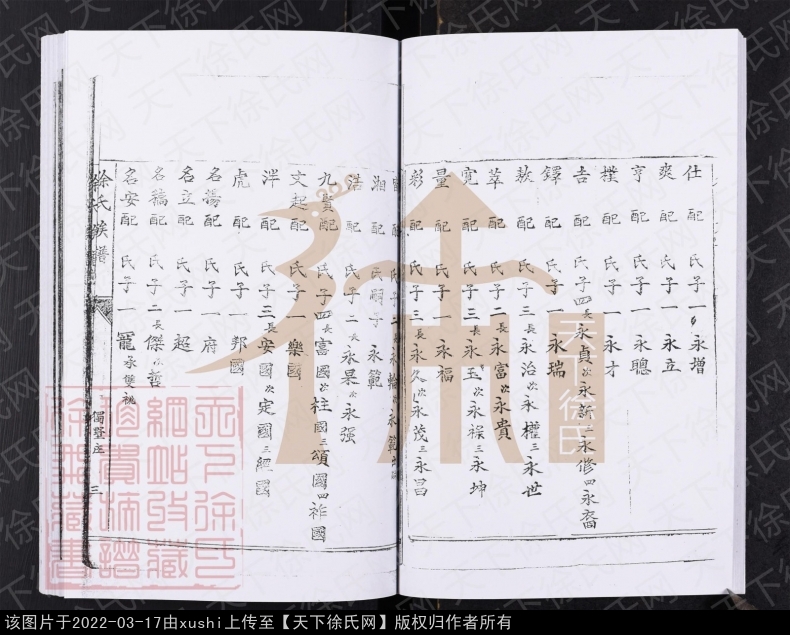 仕 配 氏子一 永增
爽 配 氏子一 永立
亨 配 氏子一 永聰
樸 配 氏子一 永才
吉 配 氏子四 長永貞 次永新 三永修 四永裔
鐸 配 氏子一 永瑞
敖 配 氏子三 長永治 次永權 三永世
萃 配 氏子二 長永富 次永貴
寬 配 氏子三 長永玉 次永祿 三永坤
量 配 氏子一 永福
彭 配 氏子三 長永久 次永茂 三永昌
湘 配 氏嗣子 永範
浩 配 氏子二 長永果 次永强
九賢配 氏子四 長富國 次柱國 三頌國 四祚國
文起配 氏子一 樂國
泮 配 氏子三 長安國 次定國 三經國
虎 配 氏子一 邦國
名揚配 氏子一 府
名立配 氏子一 超
名稿配 氏子二 長傑 次哲
名安配 氏子一 寵 承雙祧
徐氏族譜
三
天下徐氏
天下徐氏网
该图片于2022-03-17由xushi上传至【天下徐氏网】版权归作者所有